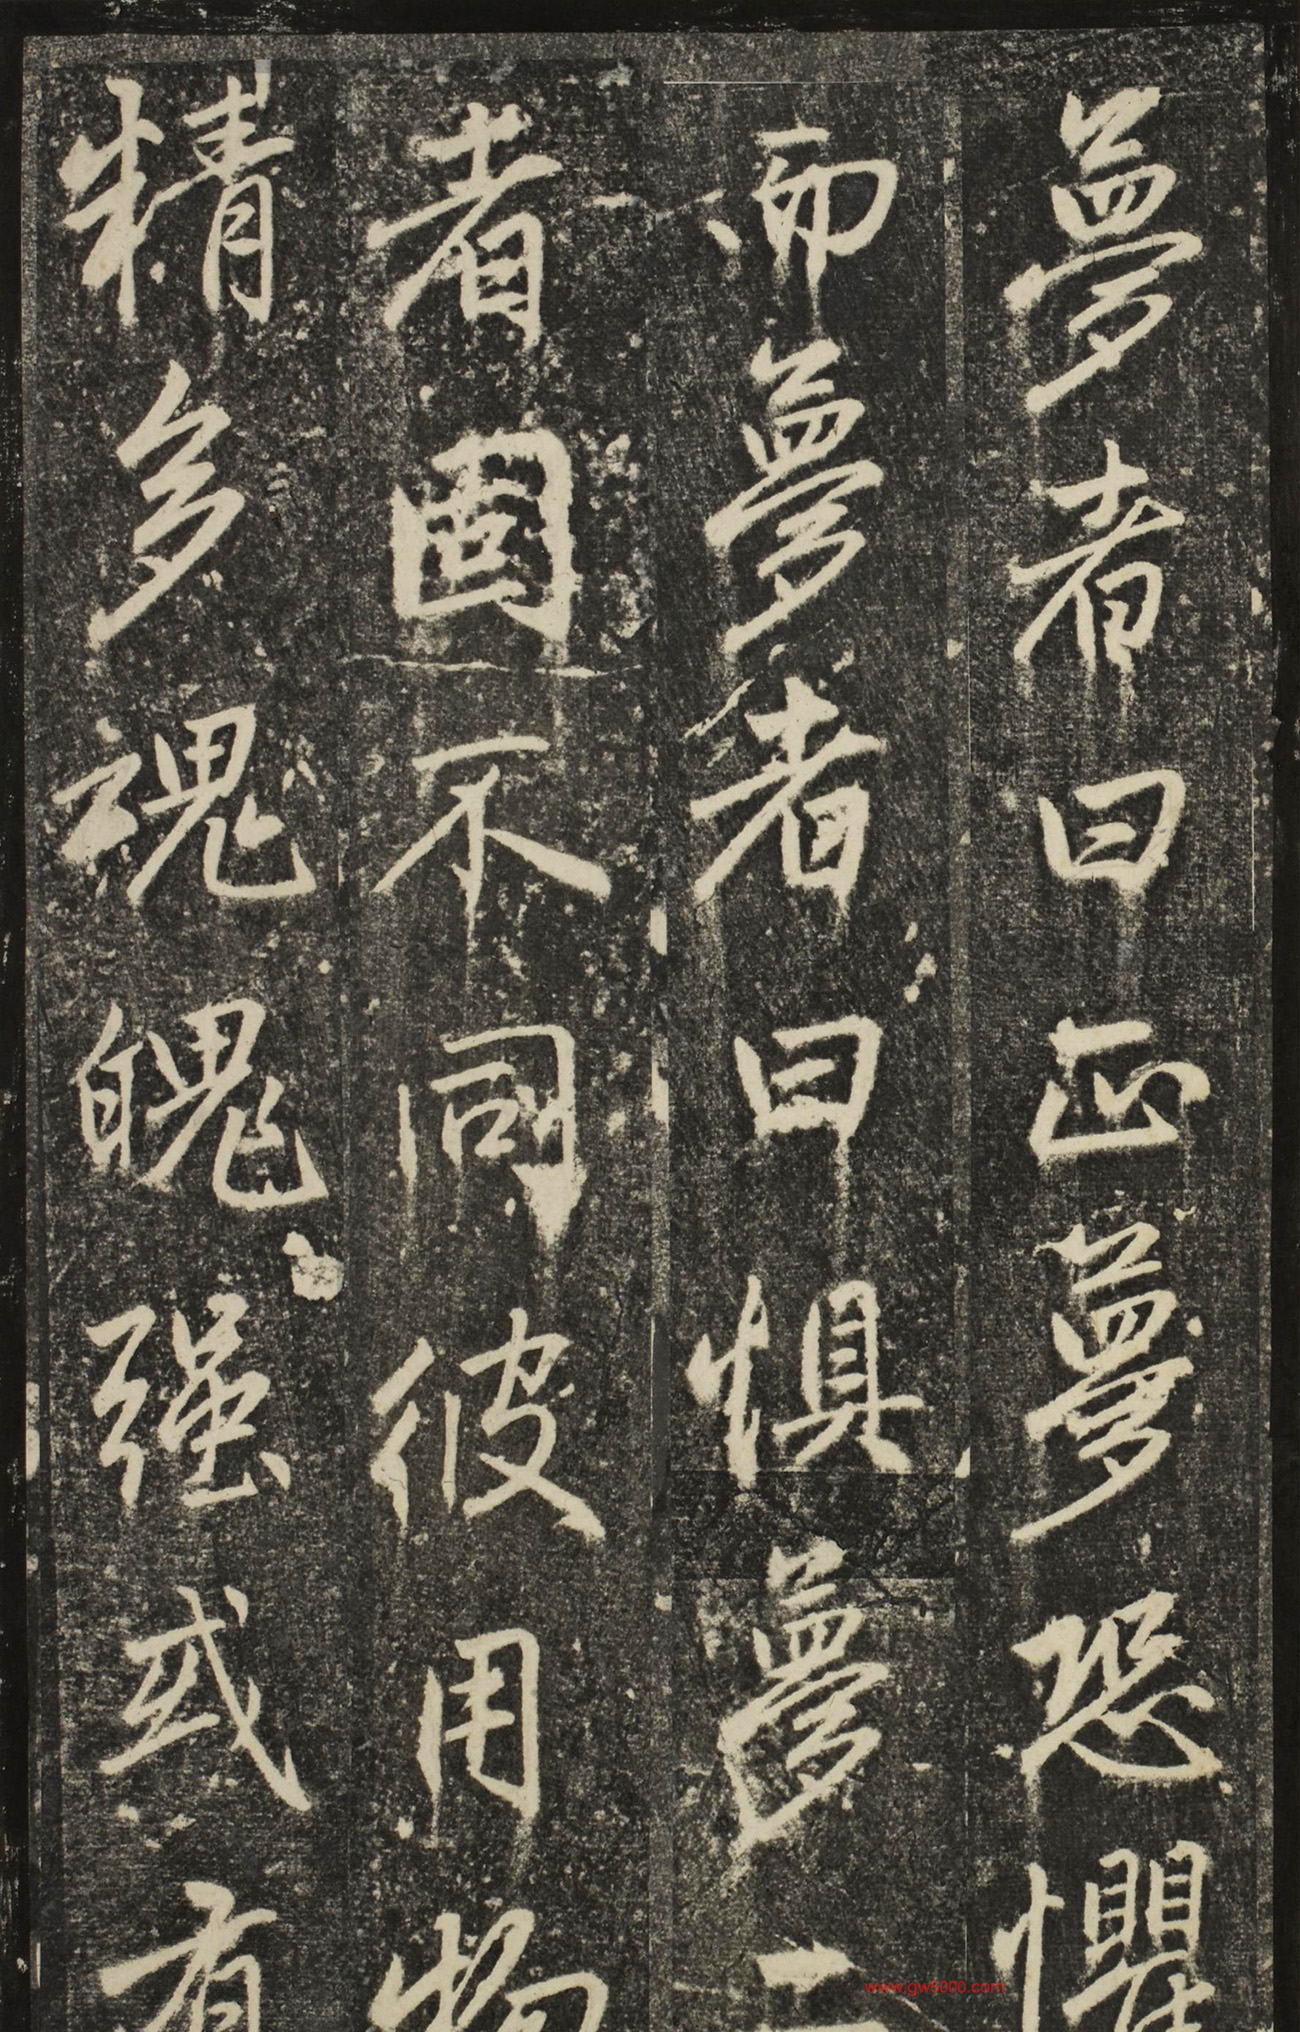 夢者曰正夢恐懼
而夢者曰惧夢二
者固不同彼用物
精多魂魄强或有
www.gw5000.com